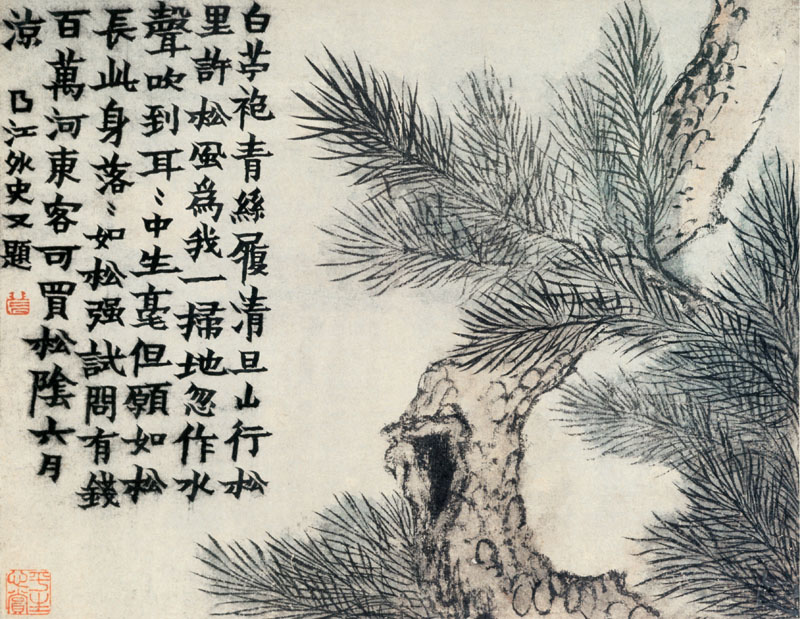 白苧袍青絲履清旦山行松
里許松風爲我一掃地忽作水
聲吹到耳〻中生毫但願如松
長此身落〻如松强試問有錢
百萬河東客可買松陰六月
涼　曲江外史又題
平生
心賞